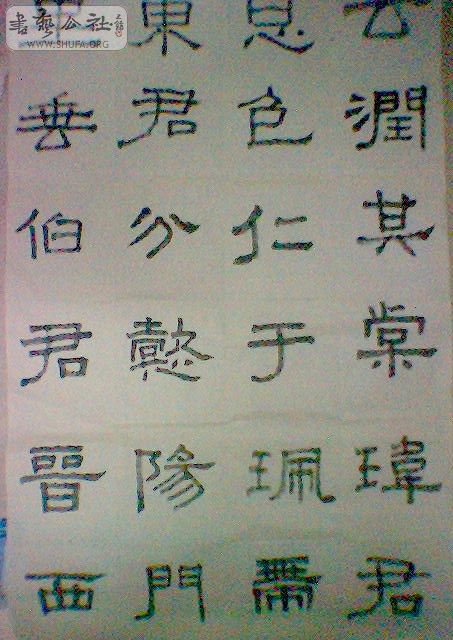 潤其棠瑋君
色仁于珮帶
東君分懿陽門
垂伯君晉西
書藝公社
WWW.SHUFA.ORG